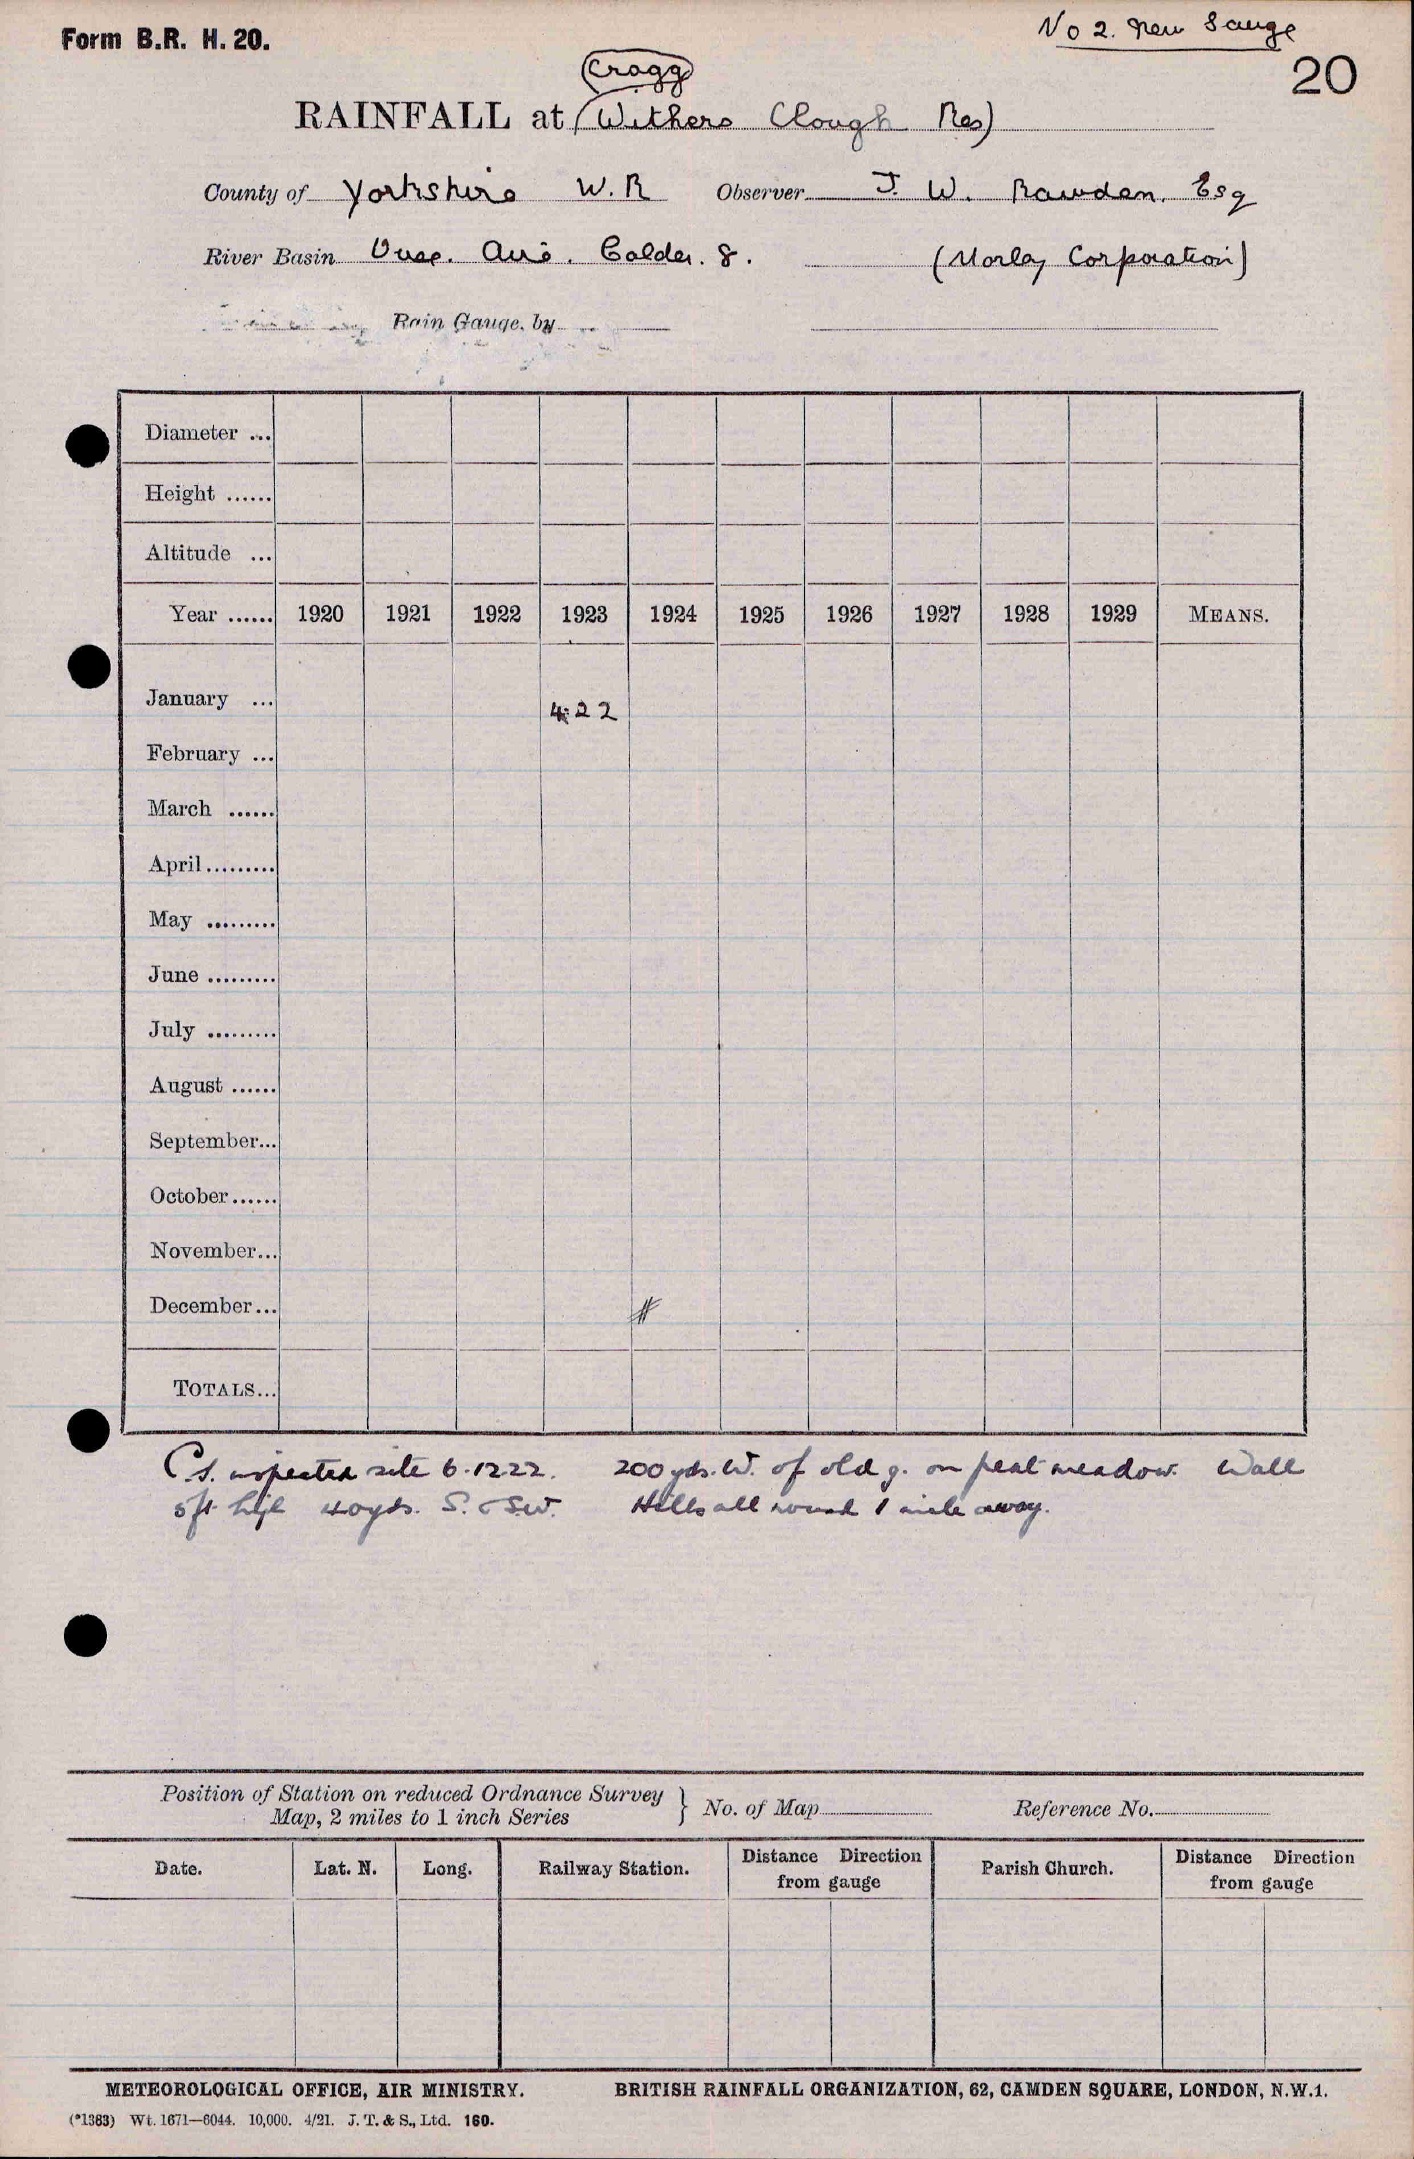 Form B.R. H. 20.
No 2. New Gauge
20
Cragg
RAINFALL at (Withens Clough Res)
County of Yorkshire W.R Observer J. W. Rawden. Esq
River Basin Ouse. Aire. Calder. 8. (Morley Corporation)
Rain Gauge. by
Diameter ...
Height ......
Altitude ...
Year ...... 1920 1921 1922 1923 1924 1925 1926 1927 1928 1929 MEANS.
January ... 4.22
February ...
March ......
April.........
May .........
June .........
July .........
August ......
September...
October......
November...
December... #
TOTALS...
C.S. inspected site 6.12.22. 200 yds. W. of old g. on peat meadow. Wall
5ft high 40 yds. S. & S.W. Hills all round 1 mile away.
Position of Station on reduced Ordnance Survey
Map, 2 miles to 1 inch Series } No. of Map Reference No.
Date. Lat. N. Long. Railway Station. Distance Direction from gauge Parish Church. Distance Direction from gauge
METEOROLOGICAL OFFICE, AIR MINISTRY. BRITISH RAINFALL ORGANIZATION, 62, CAMDEN SQUARE, LONDON, N.W.1.
(*1383) Wt. 1671—6044. 10,000. 4/21. J. T. & S., Ltd. 160.